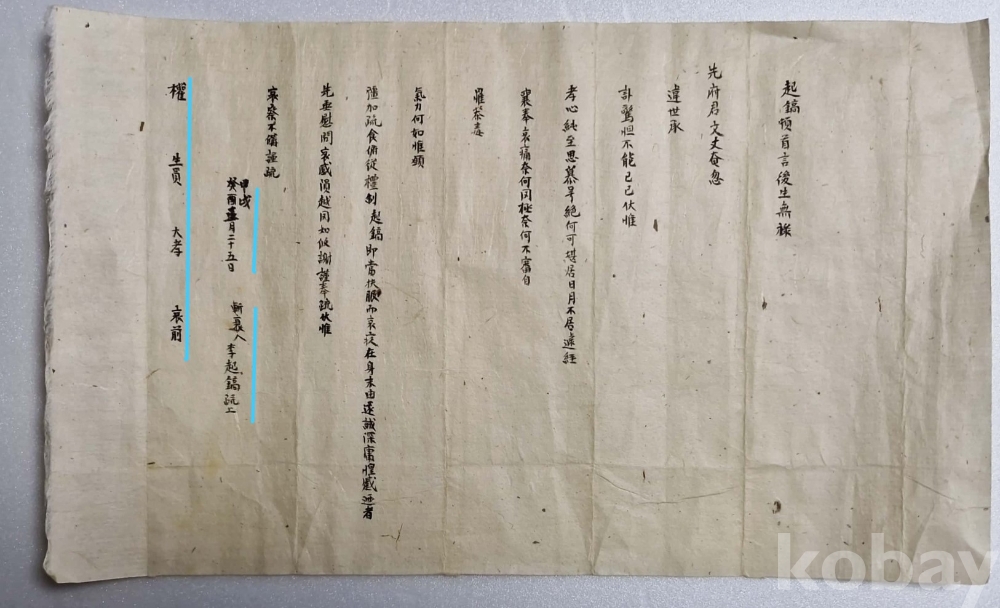 起鎬頓首言後生無祿
先府君文丈奄忽
違世承
訃驚怛不能已已伏惟
孝心純至思慕号絶何可堪居日月不居遽經
襄奉哀痛奈何罔極奈何不審自
罹荼毒
氣力何如惟願
強加疏食俯從禮制起鎬即當扶服而哀疚在身末由遂誠深庸惶慼迺者
先垂慰問哀感隕越罔知攸謝謹奉疏伏惟
哀察不備謹疏
甲戌
癸酉 月二十五日
斬衰人 李起鎬 疏上
權 生員 大孝 哀前
kobay